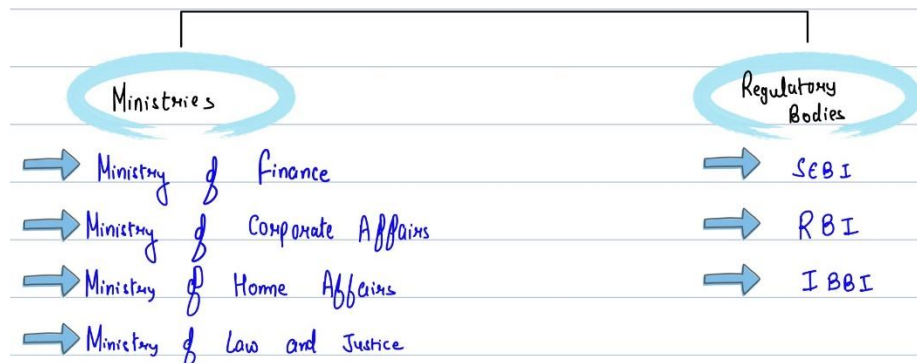 Ministries
Ministry of Finance
Ministry of Corporate Affairs
Ministry of Home Affairs
Ministry of Law and Justice
Regulatory
Bodies
SEBI
RBI
IBBI